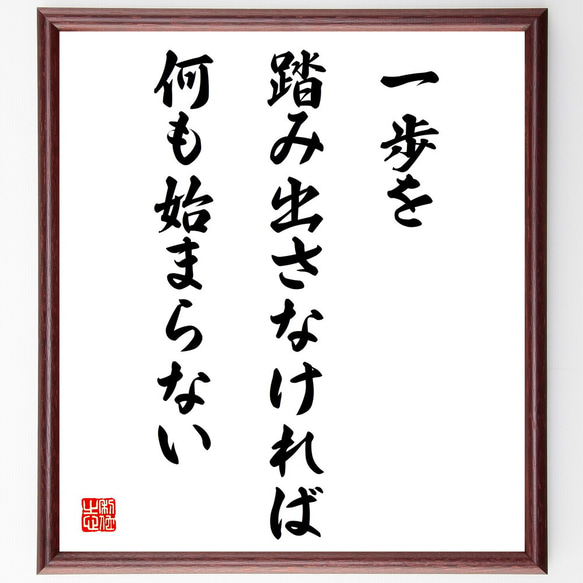 一歩を
踏み出さなければ
何も始まらない